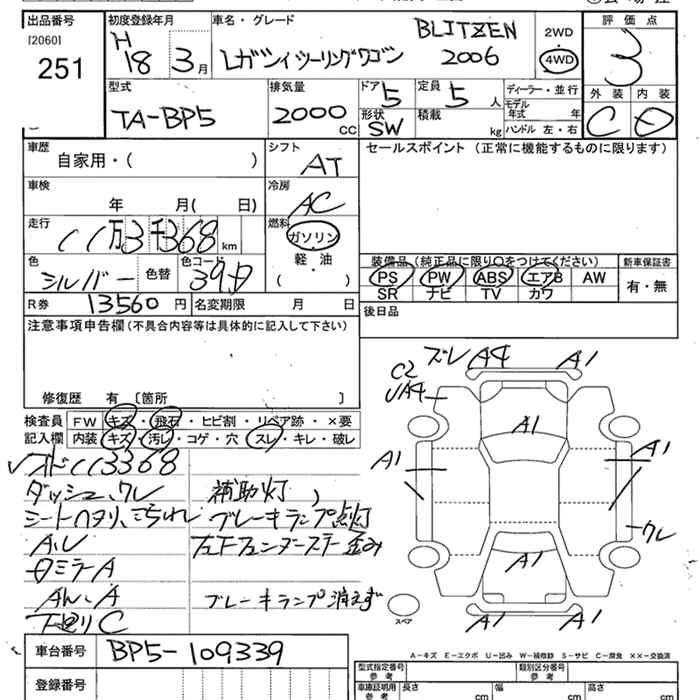 出品番号
[2060]
251
初度登録年月
H18 3月
車名・グレード
BLITZEN
レガシィツーリングワゴン 2006
2WD
4WD
評価点
3
外装 内装
C D
型式
TA-BP5
排気量
2000 CC
ドア 5
形状 SW
定員 5 人
積載 kg
ディーラー・並行
モデル年式 年
ハンドル 左・右
車歴
自家用・( )
シフト
AT
セールスポイント (正常に機能するものに限ります)
車検
年 月( 日)
冷房
AC
走行
11万3千368 km
燃料
ガソリン
軽・油
( )
色
シルバー 色替
色コード
39D
装備品(純正品に限り○をつけてください) 新車保証書
PS PW ABS エアB AW
SR ナビ TV カワ
有・無
R券 13560 円 名変期限 月 日
後日品
注意事項申告欄(不具合内容等は具体的に記入して下さい)
修復歴 有 [箇所 ]
検査員記入欄
FW キズ・飛石・ヒビ割・リペア跡・×要
内装 キズ・汚レ・コゲ・穴・スレ・キレ・破レ
113368
補助灯
シートヘタリ、
ブレーキランプ点灯
左Fフェンダーステー歪み
ブレーキランプ消えず
下廻りC
ズレ A4 A1
C2
UA4
A1
A1 A1
ワレ
A1
A1 A1
スペア
A-キズ E-エクボ U-凹み W-補修跡 S-サビ C-腐食 ××-交換済
車台番号 BP5-109339
登録番号
型式指定番号 参考
類別区分番号 参考
車庫証明用 参考
長さ cm 幅 cm 高さ cm